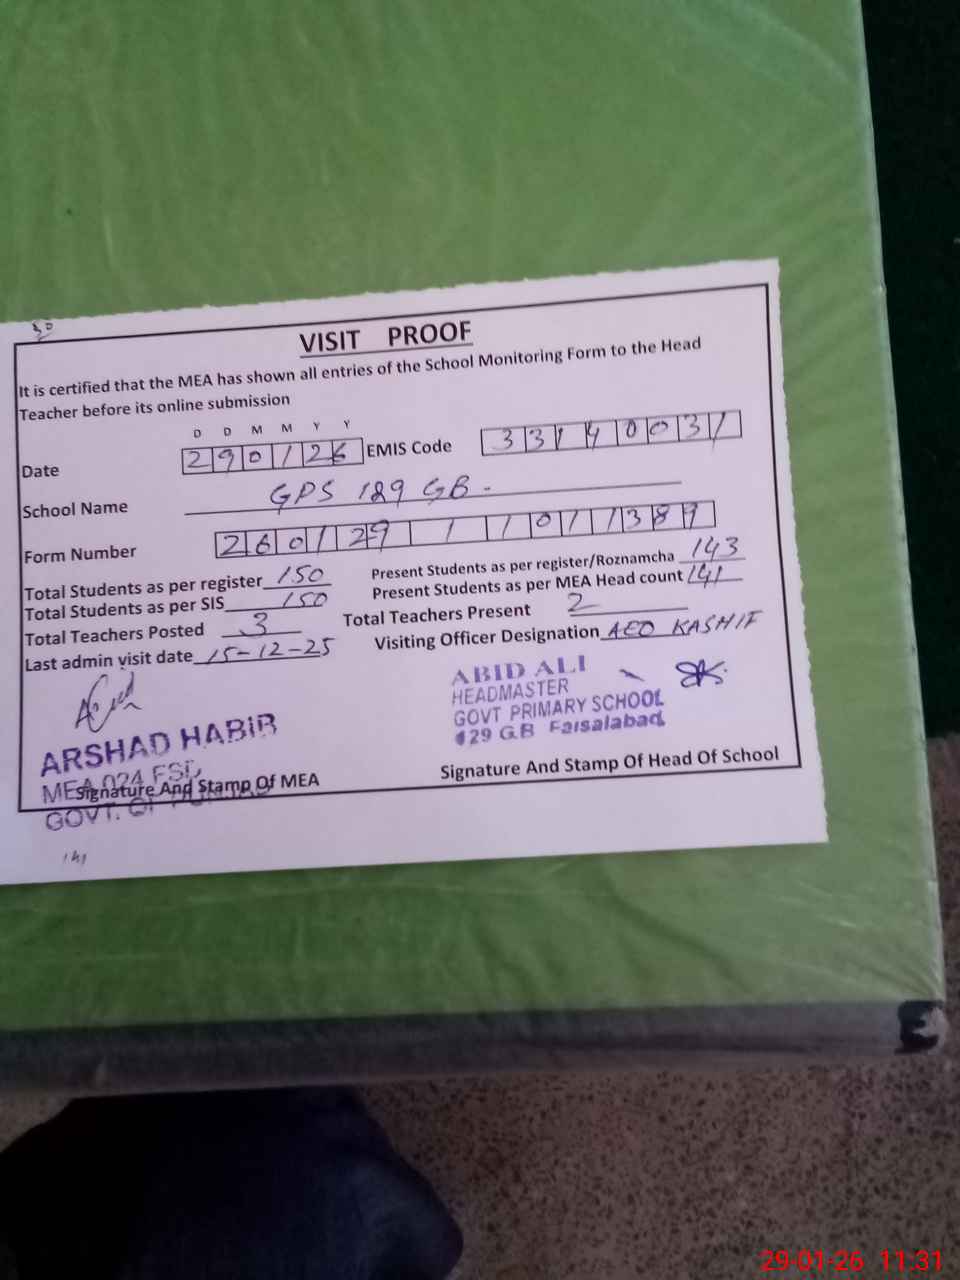 30
VISIT PROOF
It is certified that the MEA has shown all entries of the School Monitoring Form to the Head
Teacher before its online submission
D D M M Y Y
Date 290126 EMIS Code 33140031
School Name GPS 129 GB.
Form Number 260129 1 1011389
Total Students as per register 150 Present Students as per register/Roznamcha 143
Total Students as per SIS 150 Present Students as per MEA Head count 141
Total Teachers Posted 3 Total Teachers Present 2
Last admin visit date 15-12-25 Visiting Officer Designation AEO KASHIF
ABID ALI
HEADMASTER
GOVT PRIMARY SCHOOL
129 G.B Faisalabad.
ARSHAD HABIB
MEA 024 FSD
GOVT. OF PUNJAB
Signature And Stamp Of MEA Signature And Stamp Of Head Of School
141
E
29-01-26 11:31